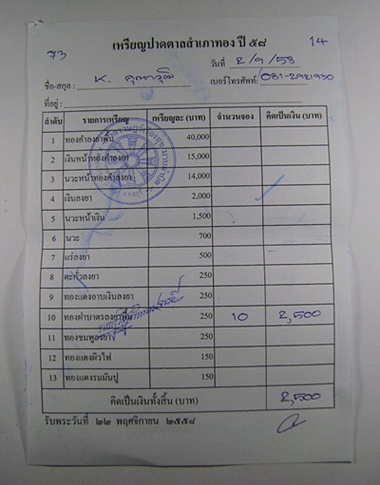 73 เหรียญปาดตาลสำเภาทอง ปี ๕๘ 14
วันที่ 2/9/58
ชื่อ-สกุล : K. คุณาวุฒิ เบอร์โทรศัพท์:
ที่อยู่ :
ลำดับ รายการเหรียญ เหรียญละ (บาท) จำนวนจอง คิดเป็นเงิน (บาท)
1 ทองคำลงยา 40,000
2 เงินหน้าทองคำลงยา 15,000
3 นวะหน้าทองคำลงยา 14,000
4 เงินลงยา 2,000
5 นวะหน้าเงิน 1,500
6 นวะ 700
7 แร่ลงยา 500
8 ตะกั่วลงยา 250
9 ทองแดงอาบเงินลงยา 250
10 ทองฝาบาตรลงยา 250 10 2,500
11 ทองชมพูลงยา 250
12 ทองแดงผิวไฟ 150
13 ทองแดงรมมันปู 150
คิดเป็นเงินทั้งสิ้น (บาท) 2,500
รับพระวันที่ ๒๒ พฤศจิกายน ๒๕๕๘